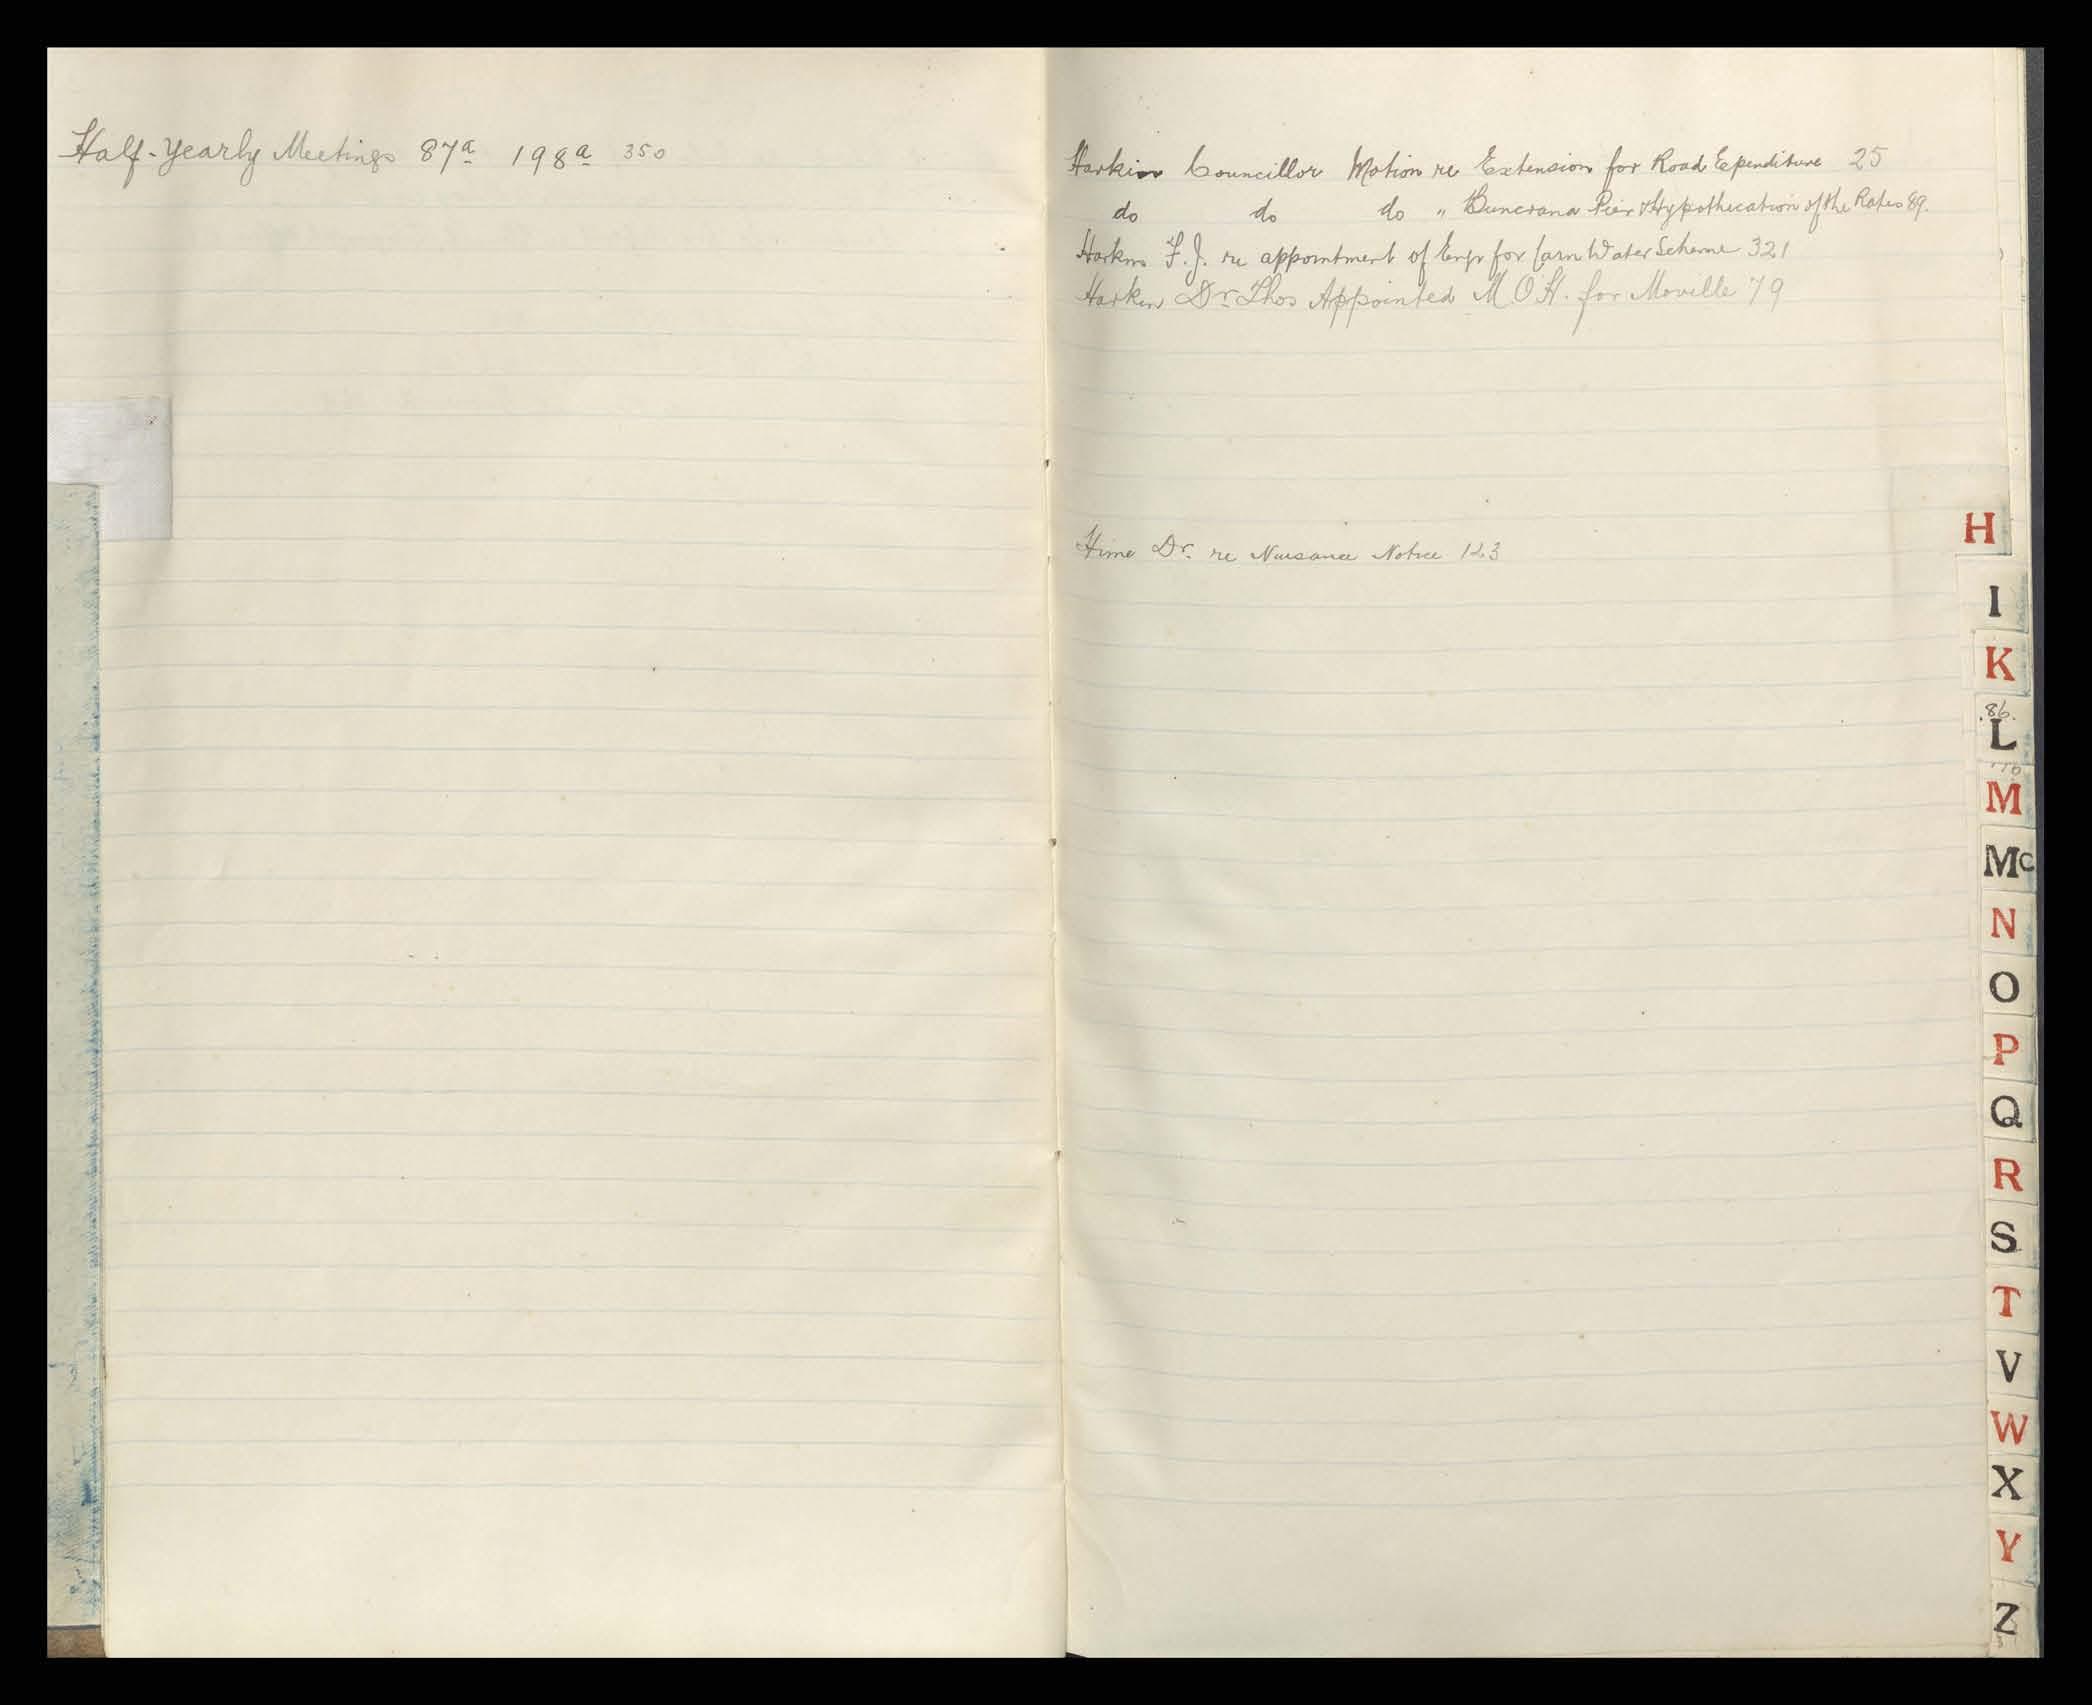 Half-Yearly Meetings 87a 198a 350
Harkin Councillor Motion re Extension for Road Expenditure 25
do do do " Buncrana Pier & Hypothecation of the Rates 89.
Harkin F. J. re appointment of Engr for Carn Water Scheme 321
Harkin Dr. Thos Appointed M.O.H. for Moville 79
Hime Dr. re Nuisance Notice 123
H
I
K
86.
L
M
Mc
N
O
P
Q
R
S
T
V
W
X
Y
Z